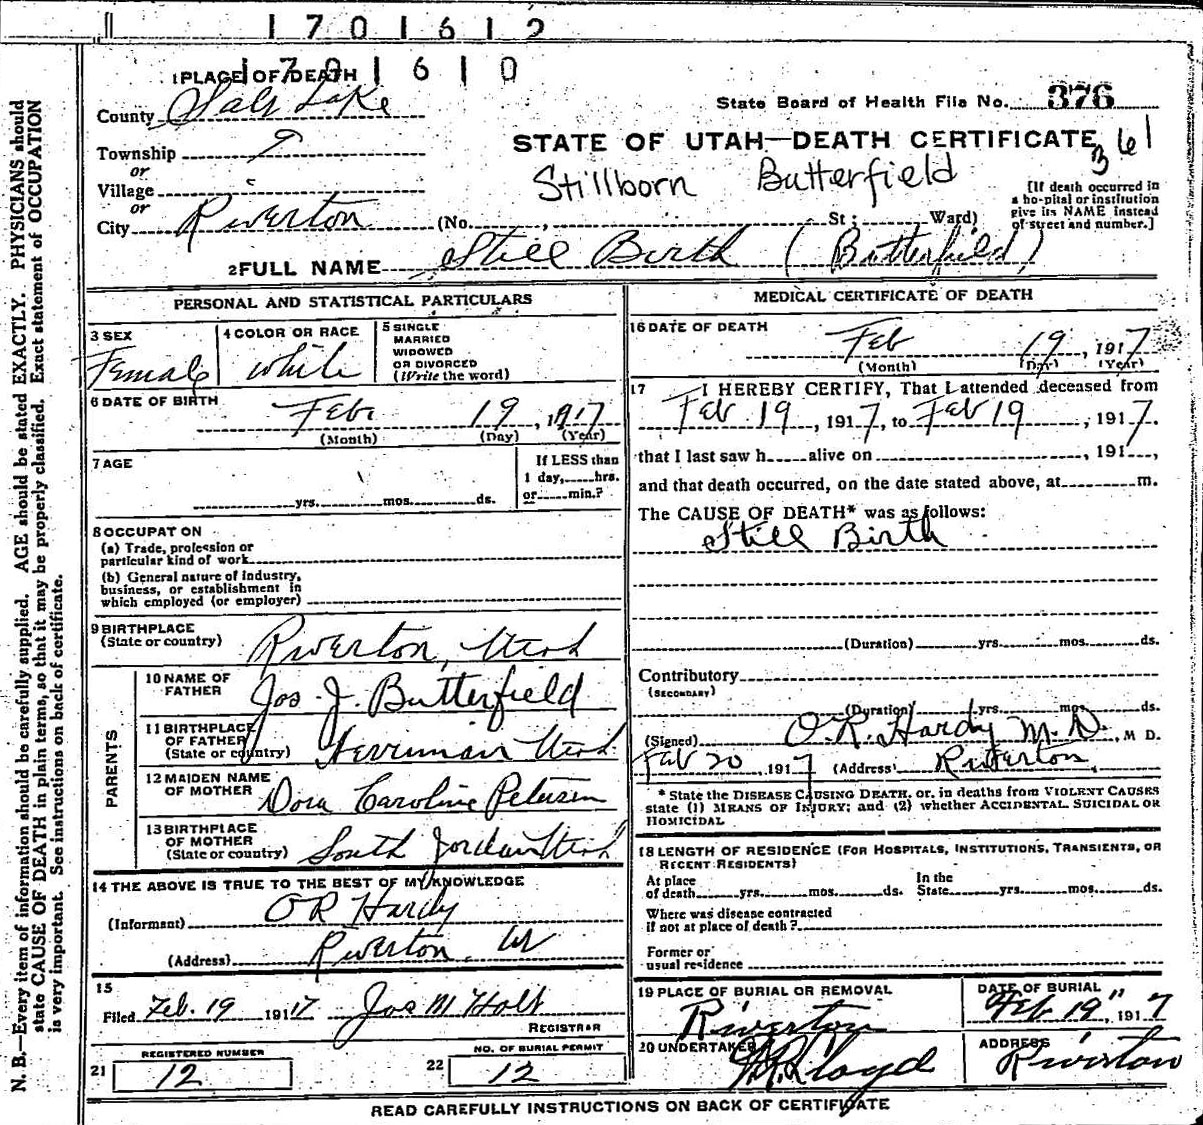 1701612
1701610
1 PLACE OF DEATH
County Salt Lake
Township
or
Village
or
City Riverton (No. , St; Ward)
State Board of Health File No. 376
STATE OF UTAH—DEATH CERTIFICATE 361
Stillborn Butterfield
[If death occurred in a hospital or institution give its NAME instead of street and number.]
2 FULL NAME Still Birth (Butterfield)
PERSONAL AND STATISTICAL PARTICULARS
3 SEX
Female
4 COLOR OR RACE
White
5 SINGLE
MARRIED
WIDOWED
OR DIVORCED
(Write the word)
6 DATE OF BIRTH
Feb. 19, 1917
(Month) (Day) (Year)
7 AGE
yrs. mos. ds.
If LESS than
1 day, hrs.
or min.?
8 OCCUPATION
(a) Trade, profession or
particular kind of work
(b) General nature of industry,
business, or establishment in
which employed (or employer)
9 BIRTHPLACE
(State or country) Riverton, Utah
PARENTS
10 NAME OF
FATHER Jos. J. Butterfield
11 BIRTHPLACE
OF FATHER
(State or country) Herriman Utah
12 MAIDEN NAME
OF MOTHER Dora Caroline Petersen
13 BIRTHPLACE
OF MOTHER
(State or country) South Jordan Utah
14 THE ABOVE IS TRUE TO THE BEST OF MY KNOWLEDGE
(Informant) O R Hardy
(Address) Riverton, Ut
15
Filed Feb. 19 1917 Jos M Holt
REGISTRAR
REGISTERED NUMBER
21 12
NO. OF BURIAL PERMIT
22 12
MEDICAL CERTIFICATE OF DEATH
16 DATE OF DEATH
Feb 19, 1917
(Month) (Day) (Year)
17 I HEREBY CERTIFY, That I attended deceased from
Feb 19, 1917, to Feb 19, 1917.
that I last saw h alive on , 191 ,
and that death occurred, on the date stated above, at m.
The CAUSE OF DEATH* was as follows:
Still Birth
(Duration) yrs. mos. ds.
Contributory
(SECONDARY)
(Duration) yrs. mos. ds.
(Signed) O. R. Hardy M. D., M D.
Feb 20, 1917 (Address) Riverton,
* State the DISEASE CAUSING DEATH, or, in deaths from VIOLENT CAUSES
state (1) MEANS OF INJURY; and (2) whether ACCIDENTAL SUICIDAL OR
HOMICIDAL
18 LENGTH OF RESIDENCE (FOR HOSPITALS, INSTITUTIONS, TRANSIENTS, OR
RECENT RESIDENTS)
At place
of death yrs. mos. ds.
In the
State yrs. mos. ds.
Where was disease contracted
if not at place of death?
Former or
usual residence
19 PLACE OF BURIAL OR REMOVAL
Riverton
DATE OF BURIAL
Feb 19", 1917
20 UNDERTAKER
Lloyd
ADDRESS
Riverton
READ CAREFULLY INSTRUCTIONS ON BACK OF CERTIFICATE
N. B.—Every item of information should be carefully supplied. AGE should be stated EXACTLY. PHYSICIANS should
state CAUSE OF DEATH in plain terms, so that it may be properly classified. Exact statement of OCCUPATION
is very important. See instructions on back of certificate.